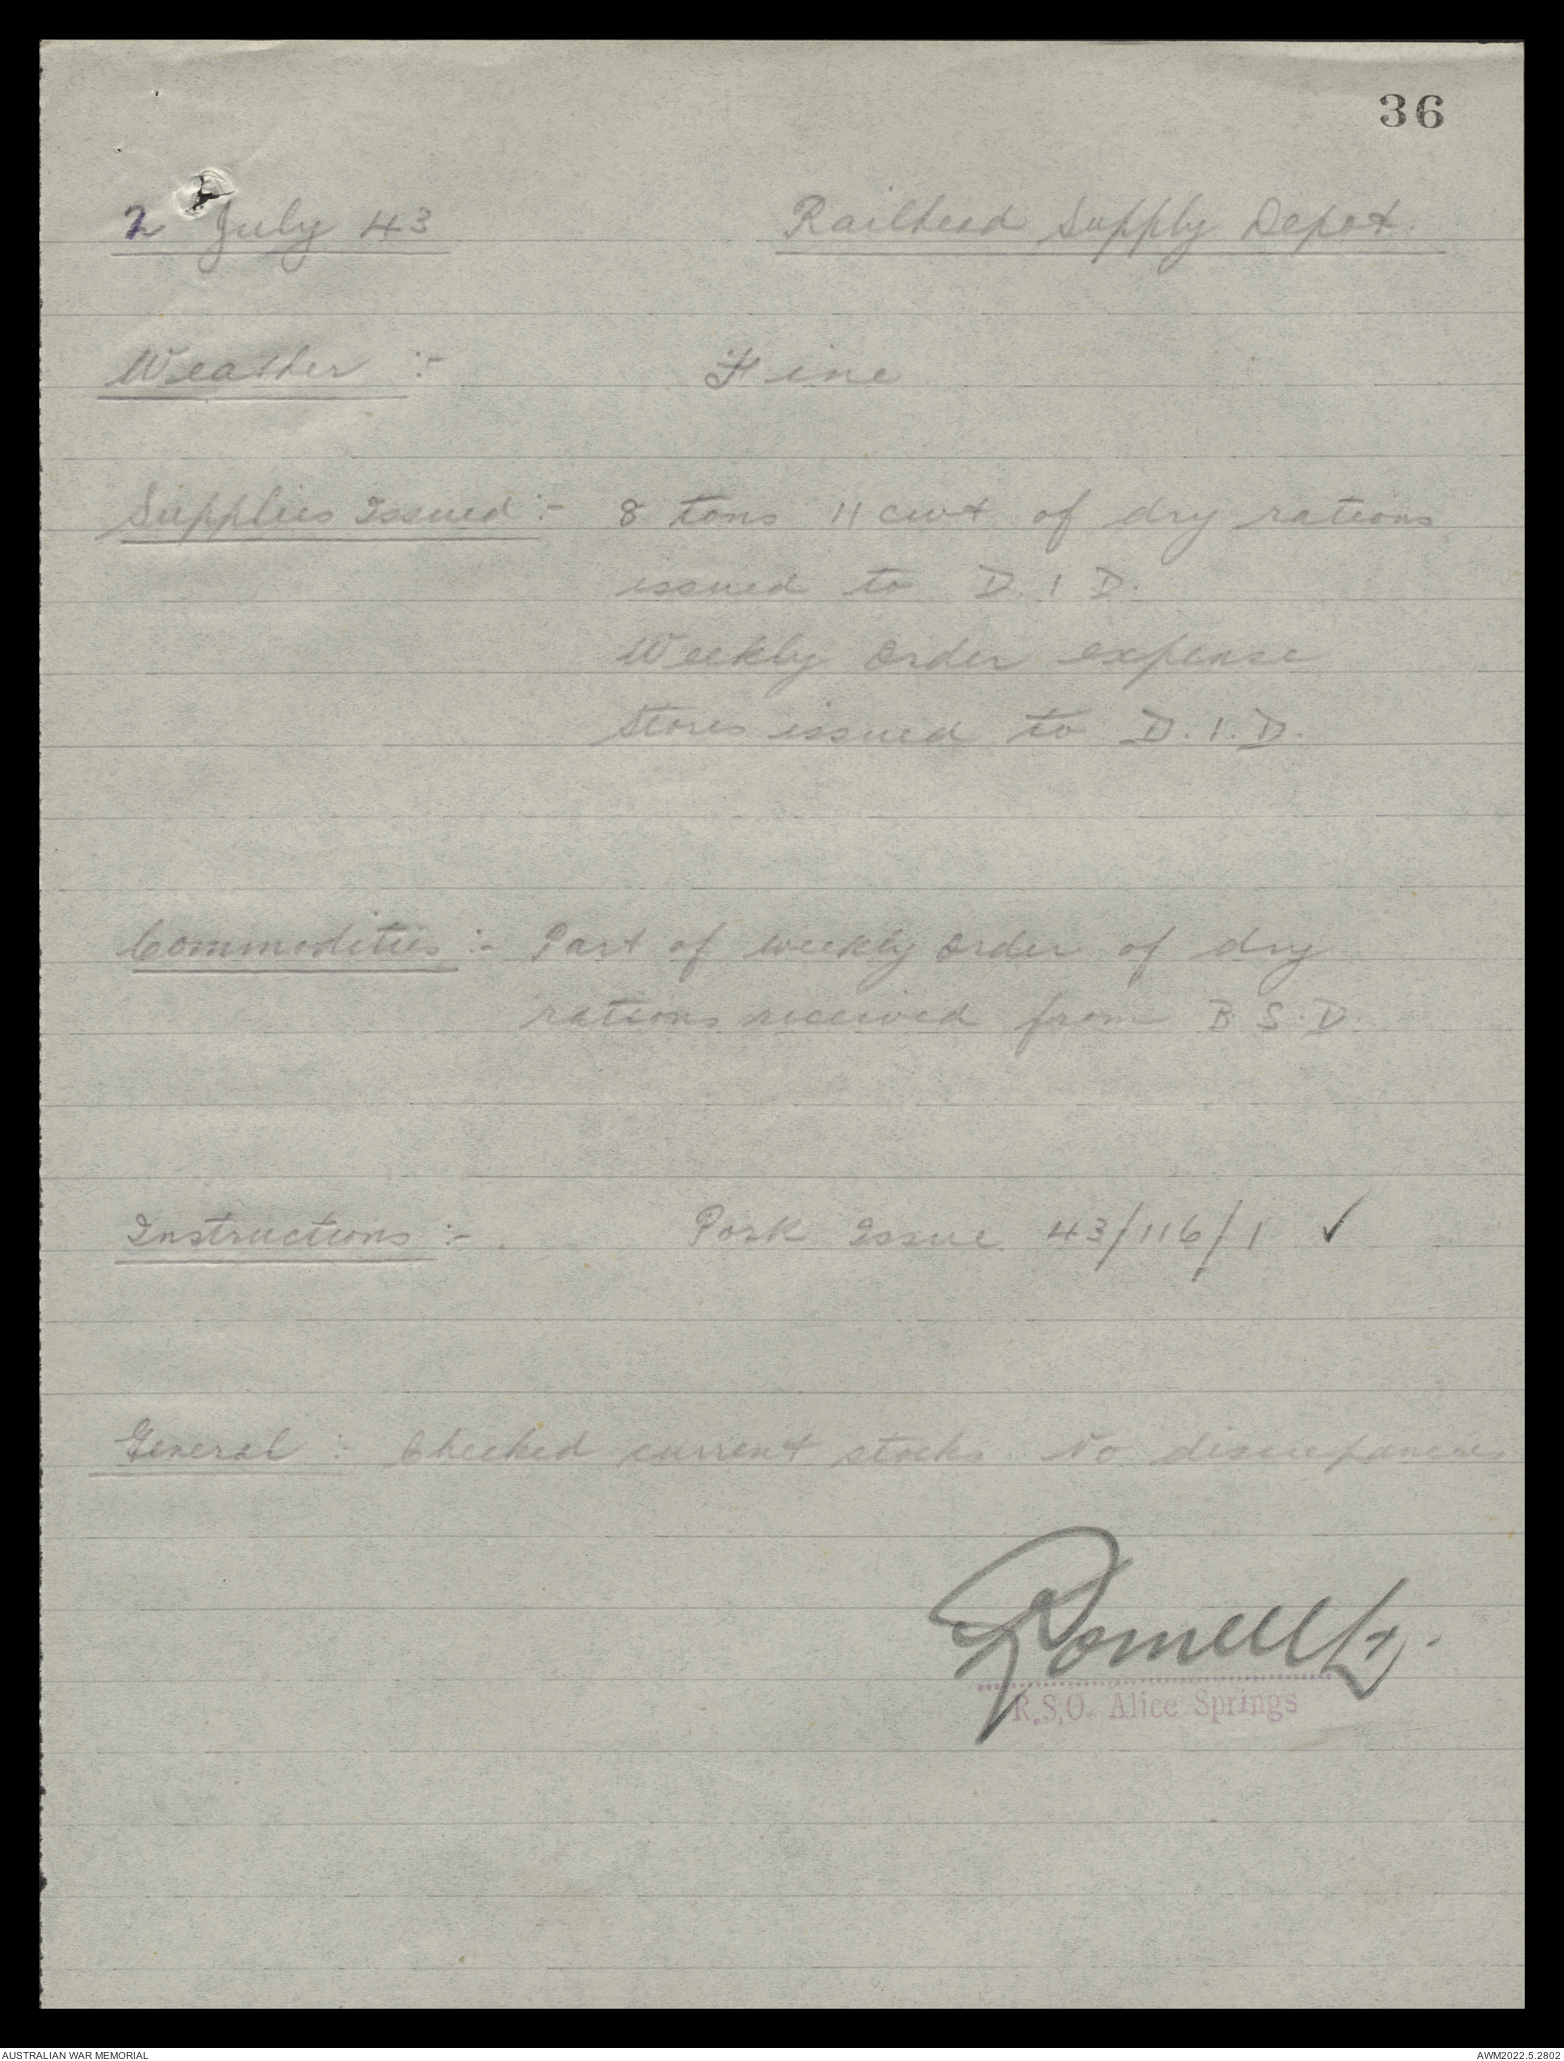 36
2 July 43 Railhead Supply Depot.
Weather :- Fine
Supplies Issued :- 8 tons 11 cwt of dry rations
issued to D. I D.
Weekly Order expense
stores issued to D. I. D.
Commodities :- Part of weekly order of dry
rations received from B. S. D.
Instructions :- Pork Issue 43/116/1 ✓
General :- Checked current stocks. No discrepancies
Lt.
R.S.O. Alice Springs
AUSTRALIAN WAR MEMORIAL AWM2022.5.2802